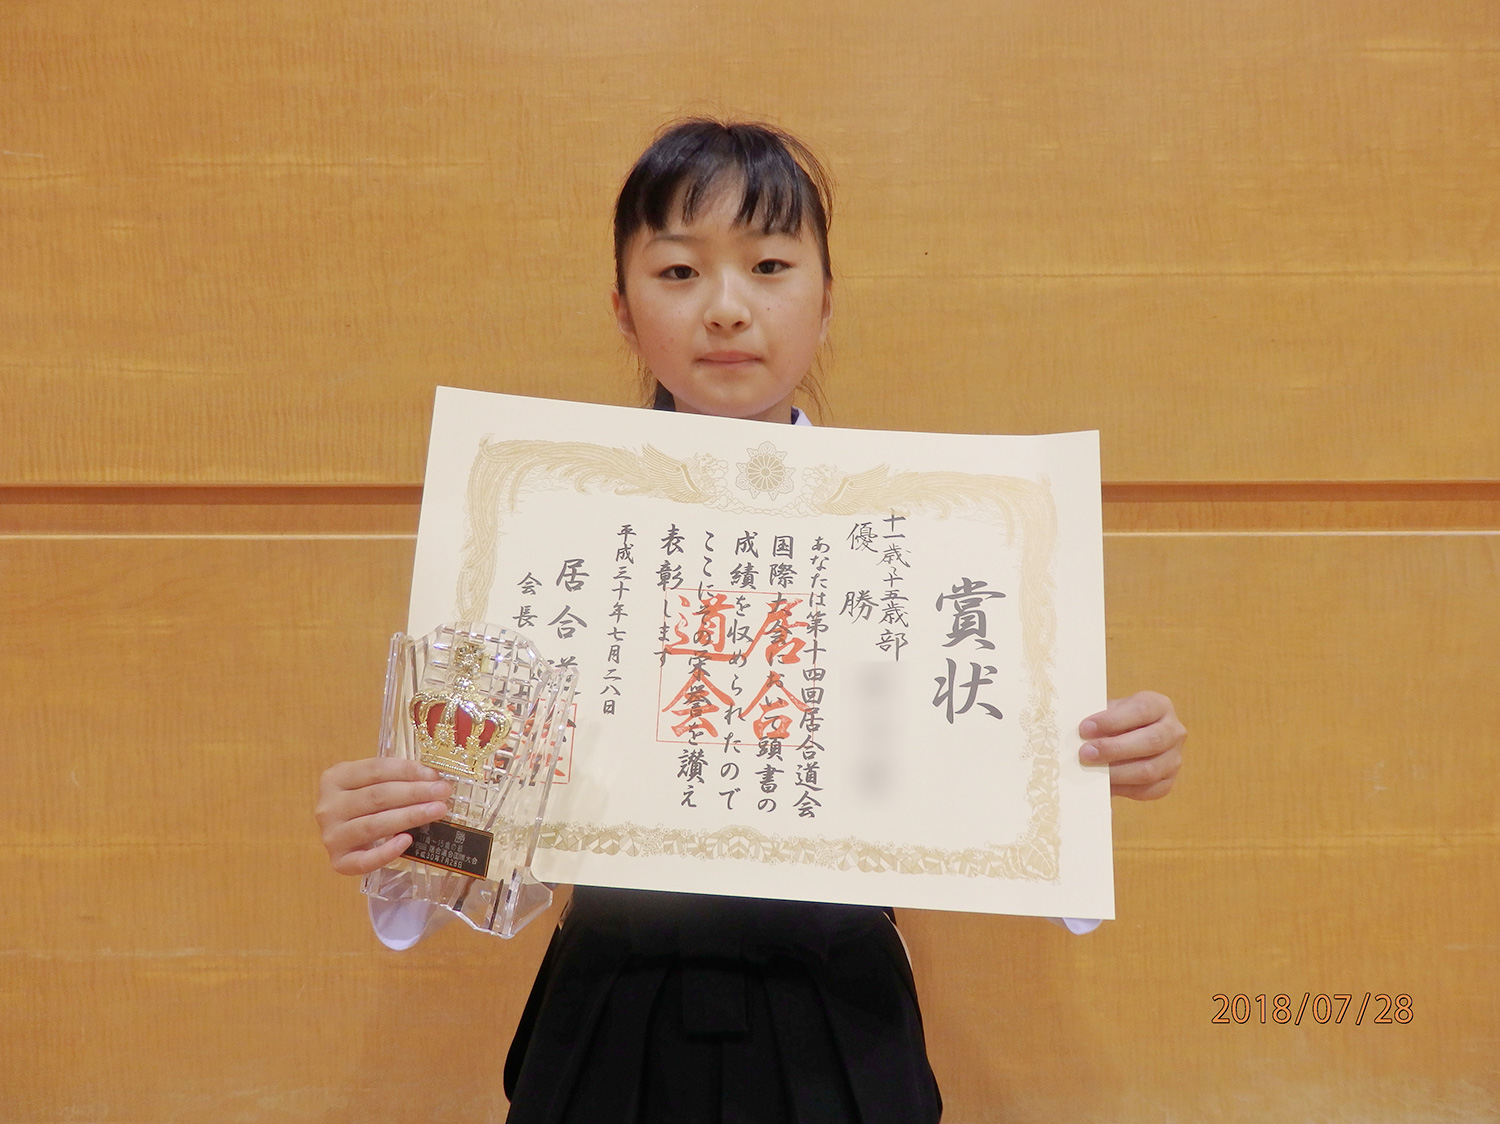 賞状
十一歳〜十五歳部
優勝
あなたは第十四回居合道会
国際大会において頭書の
成績を収められたので
ここにその栄誉を讃え
表彰します
平成三十年七月二八日
居合道会
会長
居合
道会
勝
11歳〜15歳の部
居合道会国際大会
平成30年7月28日
2018/07/28